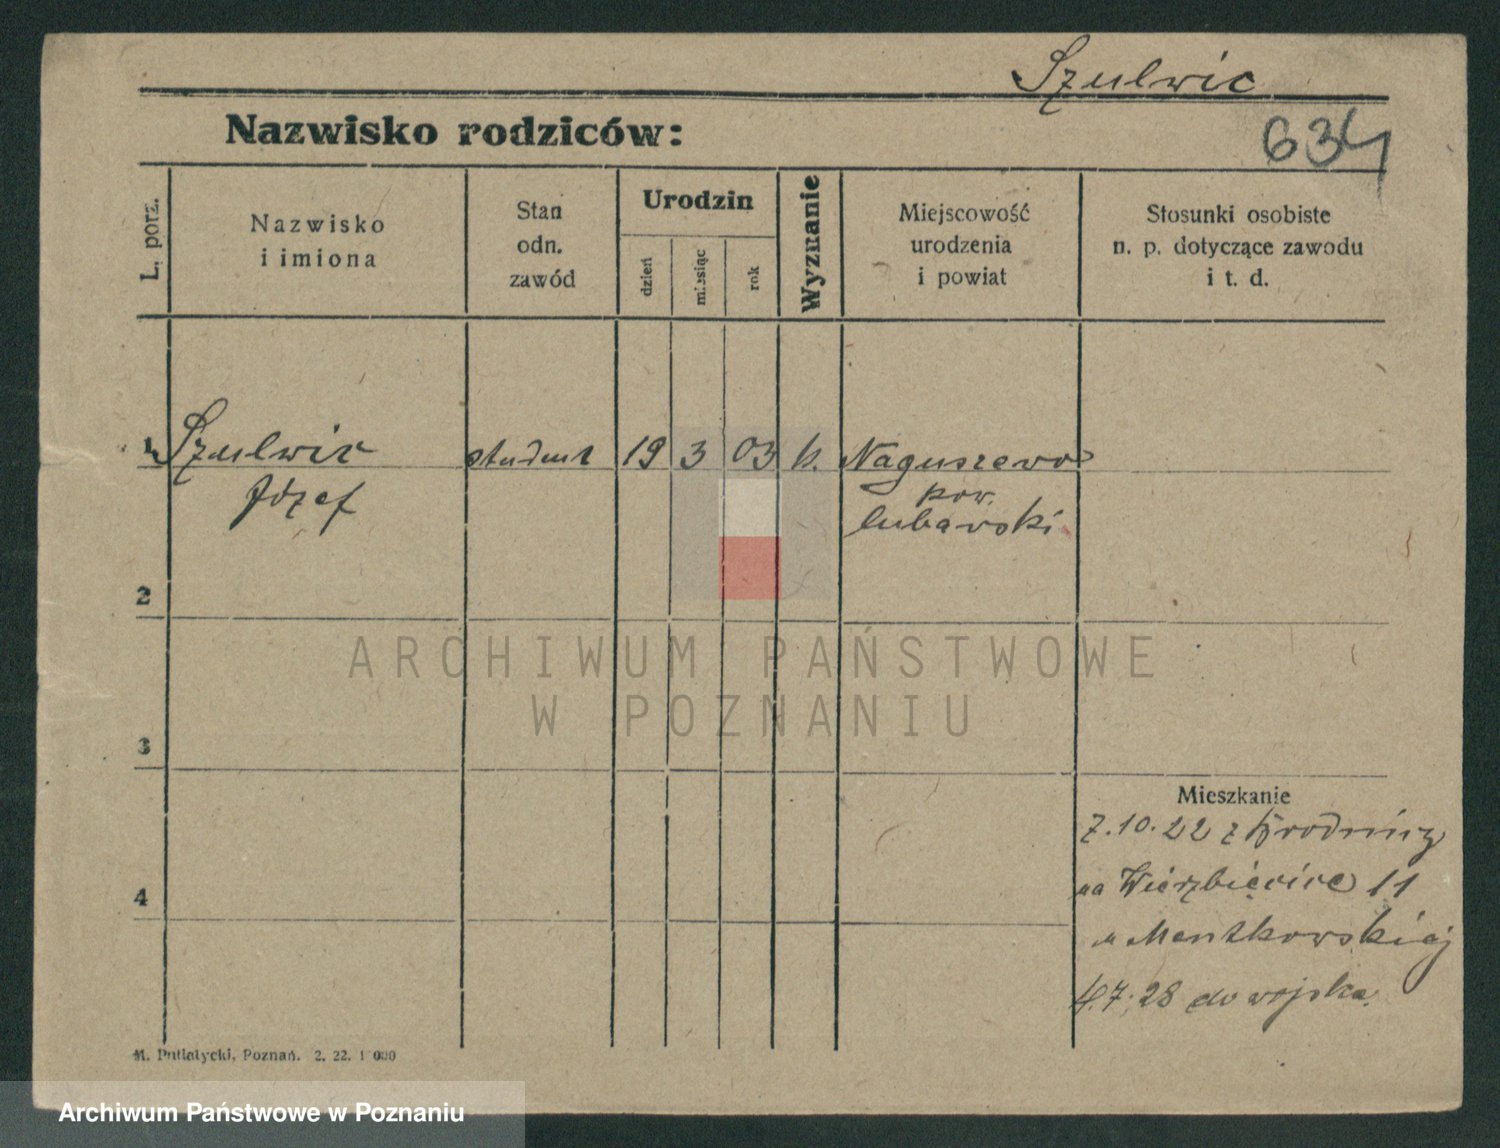 Szulwic
Nazwisko rodziców:
634
L. porz.
Nazwisko
i imiona
Stan
odn.
zawód
Urodzin
dzień
miesiąc
rok
Wyznanie
Miejscowość
urodzenia
i powiat
Stosunki osobiste
n. p. dotyczące zawodu
i t. d.
1 Szulwic student 19 3 03 k. Naguszewo
Józef pow.
lubawski
2
3
4
Mieszkanie
7.10.22 z Brodnicy
na Wierzbięcice 11
u Mentkowskiej
7.28 do wojska.
M. Putiatycki, Poznań. 2. 22. 1 000
ARCHIWUM PAŃSTWOWE
W POZNANIU
Archiwum Państwowe w Poznaniu